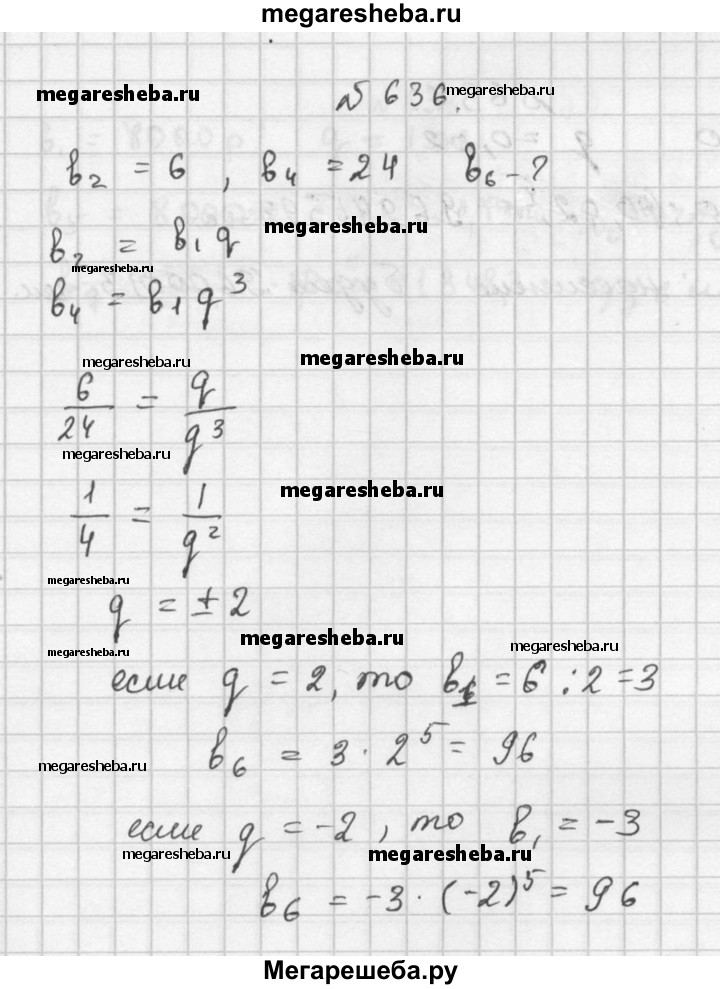 megaresheba.ru
megaresheba.ru
№ 636.
megaresheba.ru
b₂ = 6 , b₄ = 24 b₆ - ?
b₂ = b₁q
megaresheba.ru
megaresheba.ru
b₄ = b₁q³
megaresheba.ru
megaresheba.ru
6/24 = q/q³
megaresheba.ru
megaresheba.ru
1/4 = 1/q²
megaresheba.ru
q = ± 2
megaresheba.ru
megaresheba.ru
megaresheba.ru
если q = 2, то b₁ = 6 : 2 = 3
b₆ = 3 · 2⁵ = 96
megaresheba.ru
если q = -2 , то b₁ = -3
megaresheba.ru
megaresheba.ru
b₆ = -3 · (-2)⁵ = 96
Мегарешеба.ру